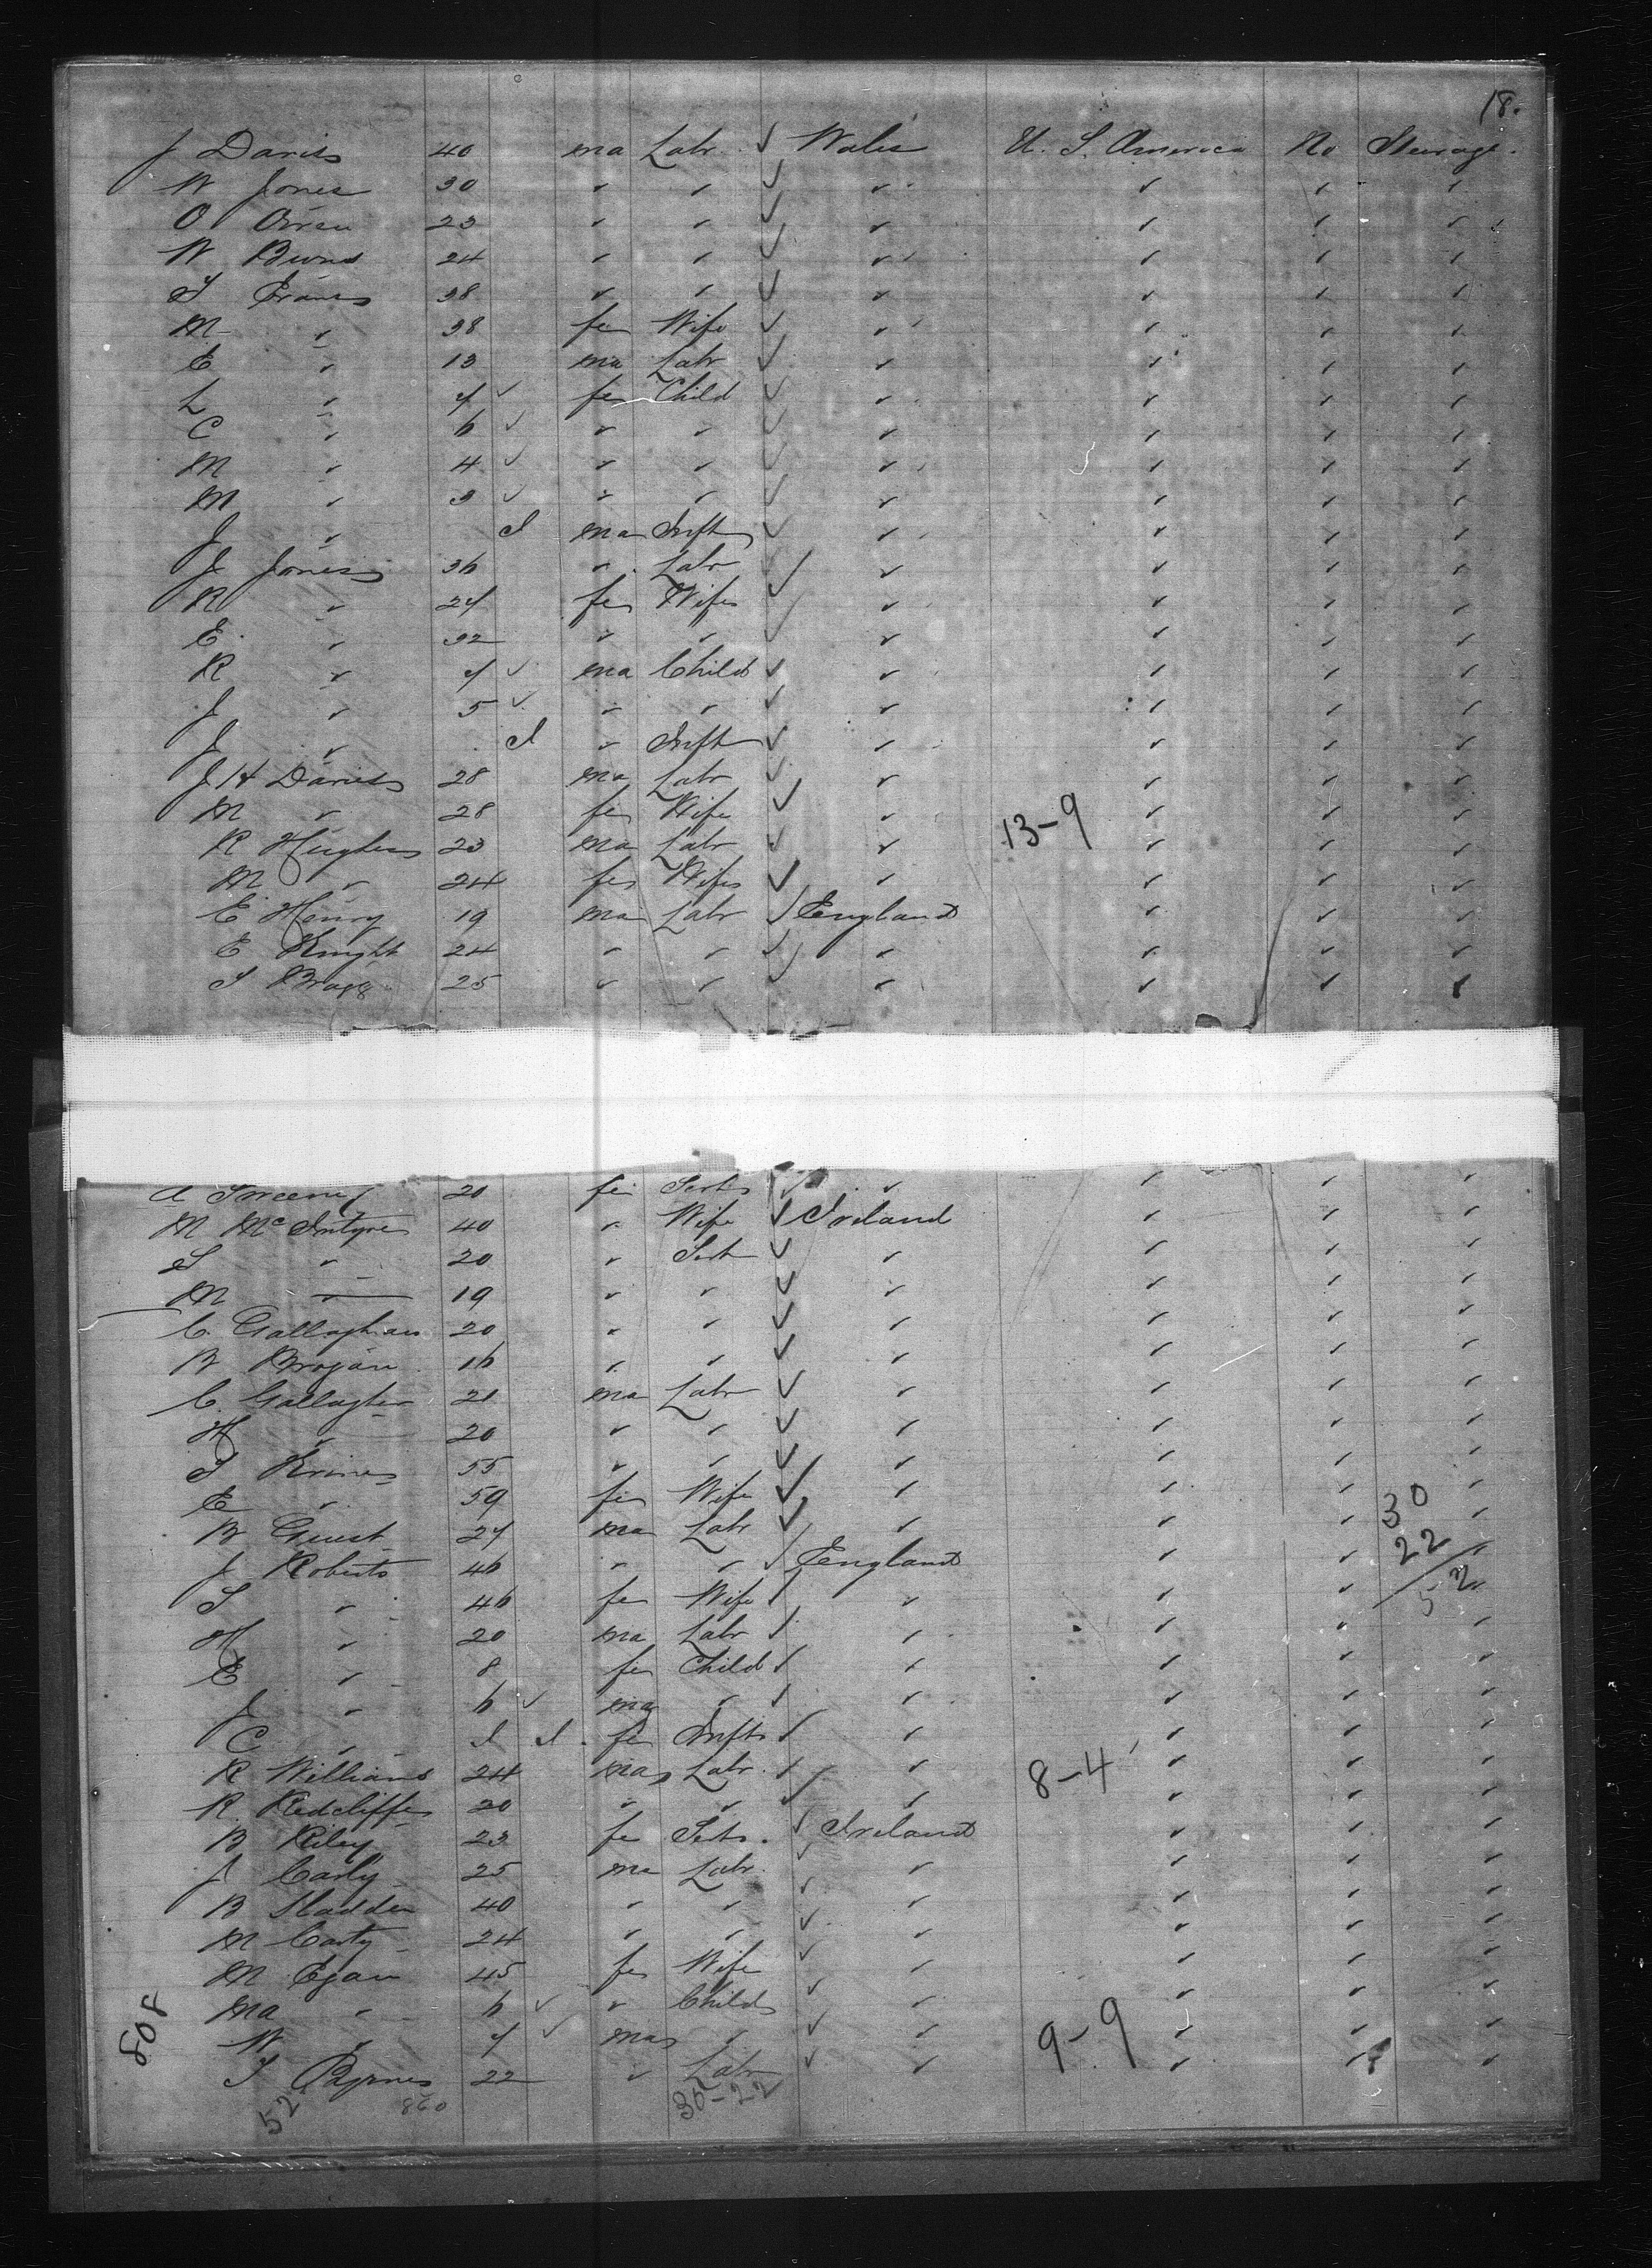 18.
J Davis 40 ma Labr ✓ Wales U. S. America No Steerage.
W Jones 30 " " ✓ " " " "
O Owen 23 " " ✓ " " " "
W Burns 24 " " ✓ " " " "
T Evans 38 " " ✓ " " " "
M " 38 fe Wife ✓ " " " "
E " 13 ma Labr ✓ " " " "
L " 7 ✓ fe Child ✓ " " " "
C " 6 ✓ " " ✓ " " " "
M " 4 ✓ " " ✓ " " " "
M " 3 ✓ " " ✓ " " " "
J " I ma Inft ✓ " " " "
J Jones 36 " Labr ✓ " " " "
R " 27 fe Wife ✓ " " " "
E " 32 " " ✓ " " " "
R " 7 ✓ ma Child ✓ " " " "
J " 5 ✓ " " ✓ " " " "
J " I " Inft ✓ " " " "
J H Davies 28 ma Labr ✓ " " " "
M " 28 fe Wife ✓ " 13-9 " " "
R Hughes 23 ma Labr ✓ " " " "
M " 24 fe Wife ✓ " " " "
E Henry 19 ma Labr ✓ England " " "
E Knight 24 " " ✓ " " " "
S Bragg 25 " " ✓ " " " "
A Sweeney 20 fe Servt ✓ " " " "
M McIntyre 40 " Wife ✓ Ireland " " "
S " 20 " Servt ✓ " " " "
M " 19 " " ✓ " " " "
C. Gallaghan 20 " " ✓ " " " "
B Brogan 16 " " ✓ " " " "
C. Gallagher 21 ma Labr ✓ " " " "
H " 20 " " ✓ " " " "
T 55 " " ✓ " " " "
E " 59 fe Wife ✓ " " " " 30
B Guest 27 ma Labr ✓ " " " " 22
J Roberts 46 " " ✓ England " " "
S " 46 fe Wife ✓ " " " " 52
H " 20 ma Labr ✓ " " " "
E " 8 fe Child ✓ " " " "
J " 6 ✓ ma " ✓ " " " "
C " I I fe Inft ✓ " " " "
R Williams 24 mas Labr ✓ " 8-4 " " "
R. Redcliffe 20 " " ✓ " " " "
B Riley 23 fe Servt ✓ Ireland " " "
J Carly 25 ma Labr ✓ " " " "
B Madden 40 " " ✓ " " " "
M Carty 24 " " ✓ " " " "
M Egan 45 fe Wife ✓ " " " "
808 Ma " 6 ✓ " Child ✓ " " " "
W " 7 ✓ mas " ✓ " 9-9 " " "
T Byrnes 22 " Labr ✓ " " " "
52 860 30-22